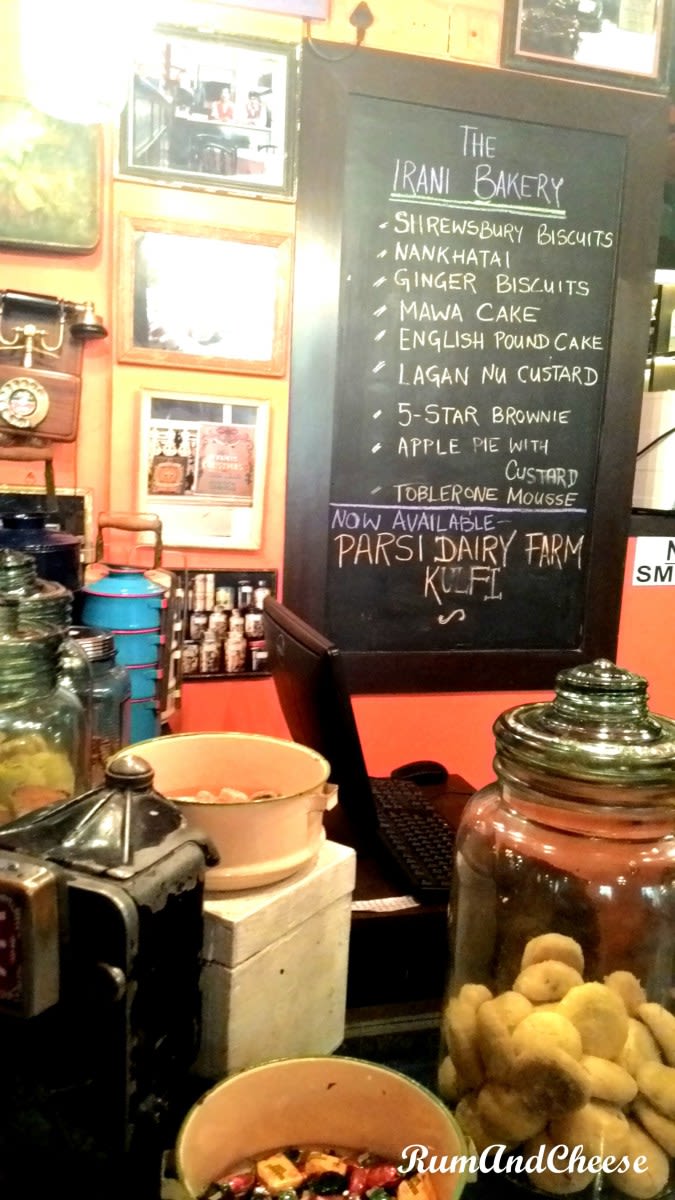 THE
IRANI BAKERY
SHREWSBURY BISCUITS
NANKHATAI
GINGER BISCUITS
MAWA CAKE
ENGLISH POUND CAKE
LAGAN NU CUSTARD
5-STAR BROWNIE
APPLE PIE WITH
CUSTARD
TOBLERONE MOUSSE
NOW AVAILABLE-
PARSI DAIRY FARM
KULFI
N
SM
RumAndCheese